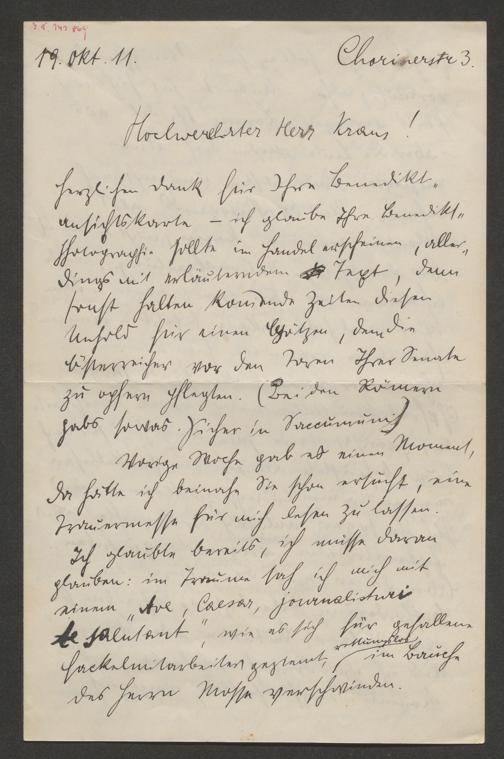 19. Okt. 11.
Chorinerstr 3.
Hochverehrter Herr Kraus!
Herzlichen Dank für Ihre Benedikt-
ansichtskarte – ich glaube Ihre Benedikt-
Photographie sollte im Handel erscheinen, aller-
dings mit erläuterndem Text, denn
sonst halten kommende Zeiten diesen
Unhold für einen Götzen, dem die
Österreicher vor den Toren Ihrer Senate
zu opfern pflegten. (Bei den Römern
gabs sowas. Sicher in
Vorige Woche gab es einen Moment,
da hätte ich beinahe Sie schon ersucht, eine
Trauermesse für mich lesen zu lassen.
Ich glaubte bereits, ich müsse daran
glauben: im Traume sah ich mich mit
einem „Ave, Caesar, journalisturi
te salutant", wie es sich für gefallene
Fackelmitarbeiter geziemt, rettungslos im Bauche
des Herrn Mosse verschwinden.